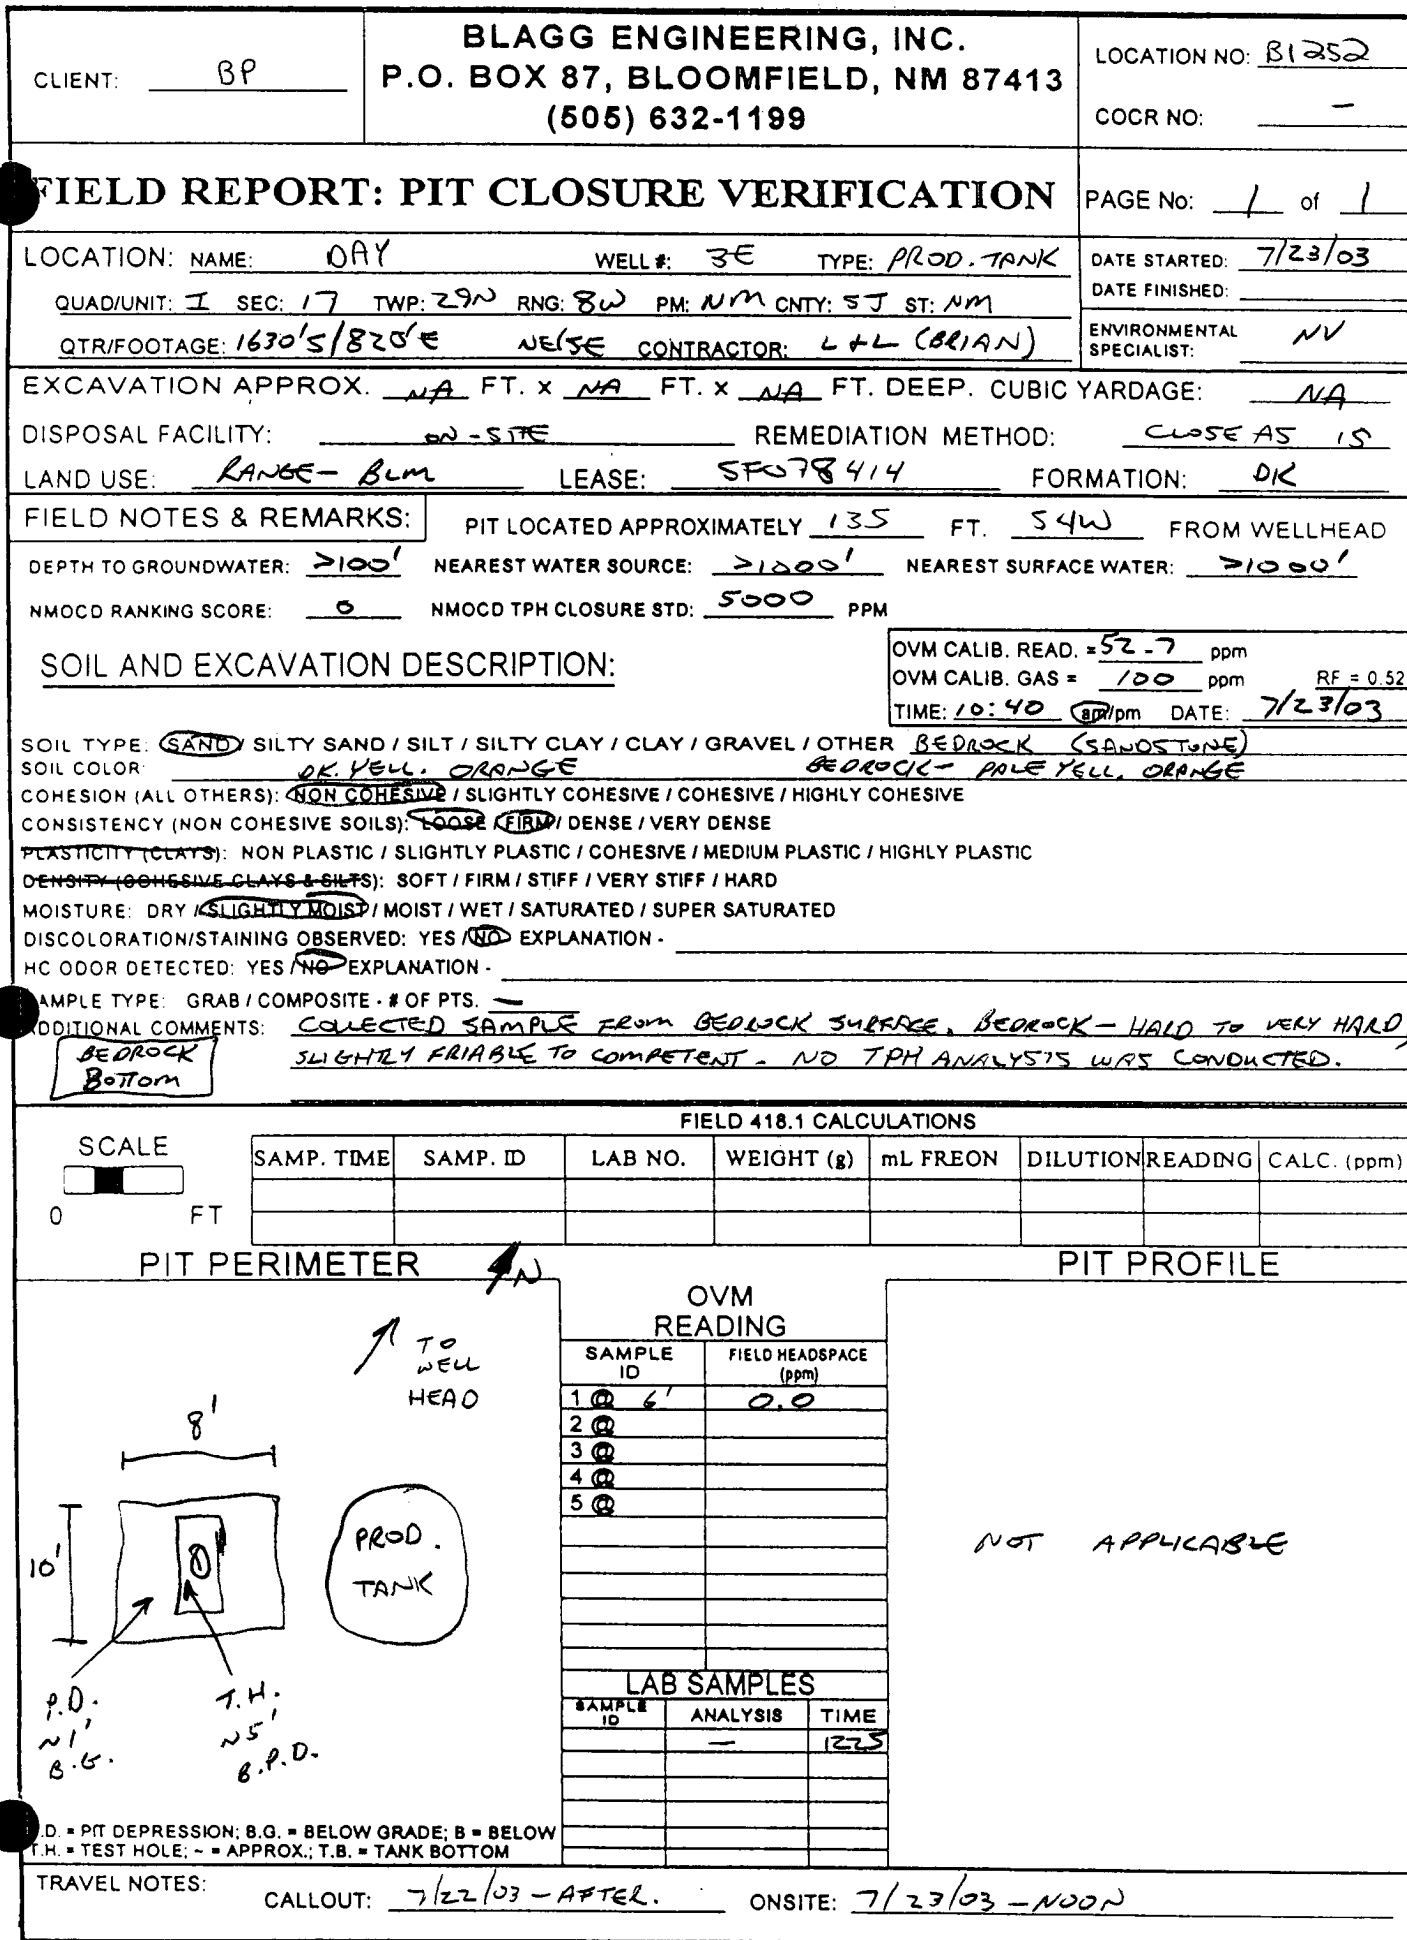 BLAGG ENGINEERING, INC.
P.O. BOX 87, BLOOMFIELD, NM 87413
(505) 632-1199
CLIENT: BP
LOCATION NO: B1252
COCR NO: -
FIELD REPORT: PIT CLOSURE VERIFICATION
PAGE No: 1 of 1
LOCATION: NAME: DAY WELL #: 3E TYPE: PROD. TANK
QUAD/UNIT: I SEC: 17 TWP: 29N RNG: 8W PM: NM CNTY: SJ ST: NM
QTR/FOOTAGE: 1630'S/820'E NE/SE CONTRACTOR: L+L (BRIAN)
DATE STARTED: 7/23/03
DATE FINISHED:
ENVIRONMENTAL SPECIALIST: NV
EXCAVATION APPROX. NA FT. x NA FT. x NA FT. DEEP. CUBIC YARDAGE: NA
DISPOSAL FACILITY: ON-SITE REMEDIATION METHOD: CLOSE AS IS
LAND USE: RANGE - BLM LEASE: SF078414 FORMATION: DK
FIELD NOTES & REMARKS: PIT LOCATED APPROXIMATELY 135 FT. S4W FROM WELLHEAD
DEPTH TO GROUNDWATER: >100' NEAREST WATER SOURCE: >1000' NEAREST SURFACE WATER: >1000'
NMOCD RANKING SCORE: 0 NMOCD TPH CLOSURE STD: 5000 PPM
SOIL AND EXCAVATION DESCRIPTION:
OVM CALIB. READ. = 52.7 ppm
OVM CALIB. GAS = 100 ppm RF = 0.52
TIME: 10:40 am/pm DATE: 7/23/03
SOIL TYPE: SAND / SILTY SAND / SILT / SILTY CLAY / CLAY / GRAVEL / OTHER BEDROCK (SANDSTONE)
SOIL COLOR: DK. YELL. ORANGE BEDROCK - PALE YELL. ORANGE
COHESION (ALL OTHERS): NON COHESIVE / SLIGHTLY COHESIVE / COHESIVE / HIGHLY COHESIVE
CONSISTENCY (NON COHESIVE SOILS): LOOSE / FIRM / DENSE / VERY DENSE
PLASTICITY (CLAYS): NON PLASTIC / SLIGHTLY PLASTIC / COHESIVE / MEDIUM PLASTIC / HIGHLY PLASTIC
DENSITY (COHESIVE CLAYS & SILTS): SOFT / FIRM / STIFF / VERY STIFF / HARD
MOISTURE: DRY / SLIGHTLY MOIST / MOIST / WET / SATURATED / SUPER SATURATED
DISCOLORATION/STAINING OBSERVED: YES / NO EXPLANATION -
HC ODOR DETECTED: YES / NO EXPLANATION -
AMPLE TYPE: GRAB / COMPOSITE - # OF PTS. -
DDITIONAL COMMENTS: COLLECTED SAMPLE FROM BEDROCK SURFACE. BEDROCK - HARD TO VERY HARD,
SLIGHTLY FRIABLE TO COMPETENT. NO TPH ANALYSIS WAS CONDUCTED.
BEDROCK
BOTTOM
FIELD 418.1 CALCULATIONS
SCALE
0 FT
SAMP. TIME SAMP. ID LAB NO. WEIGHT (g) mL FREON DILUTION READING CALC. (ppm)
PIT PERIMETER
N
PIT PROFILE
TO
WELL
HEAD
8'
10'
1
PROD.
TANK
P.D.
~1'
B.G.
T.H.
~5'
B.P.D.
OVM
READING
SAMPLE ID FIELD HEADSPACE (ppm)
1 @ 6' 0.0
2 @
3 @
4 @
5 @
NOT APPLICABLE
LAB SAMPLES
SAMPLE ID ANALYSIS TIME
- 1225
.D. = PIT DEPRESSION; B.G. = BELOW GRADE; B = BELOW
T.H. = TEST HOLE; ~ = APPROX.; T.B. = TANK BOTTOM
TRAVEL NOTES: CALLOUT: 7/22/03 - AFTER. ONSITE: 7/23/03 - NOON